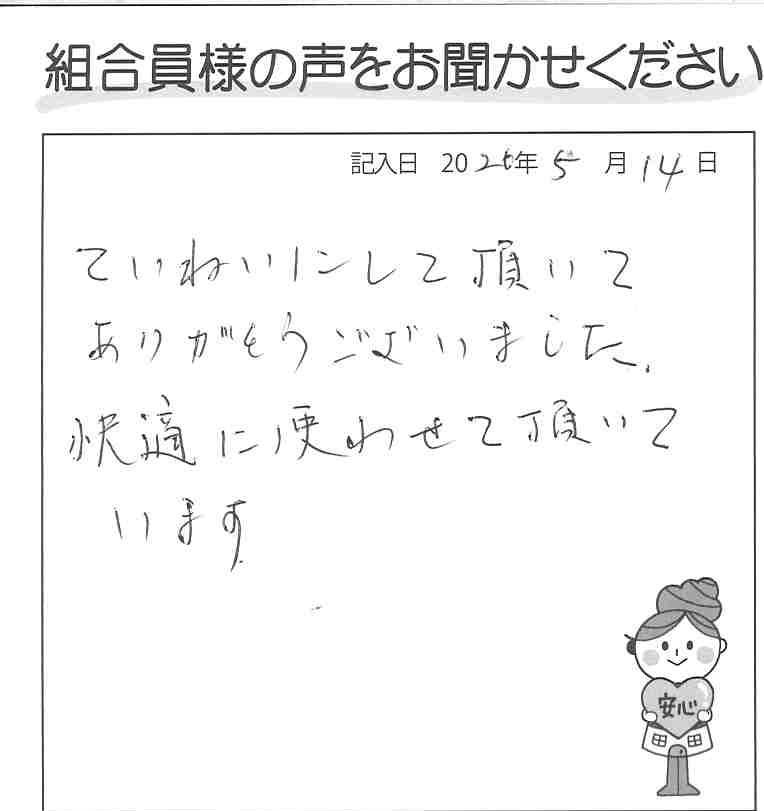 組合員様の声をお聞かせください
記入日 2026年5月14日
ていねいにして頂いて
ありがとうございました.
快適に使わせて頂いて
います
安心